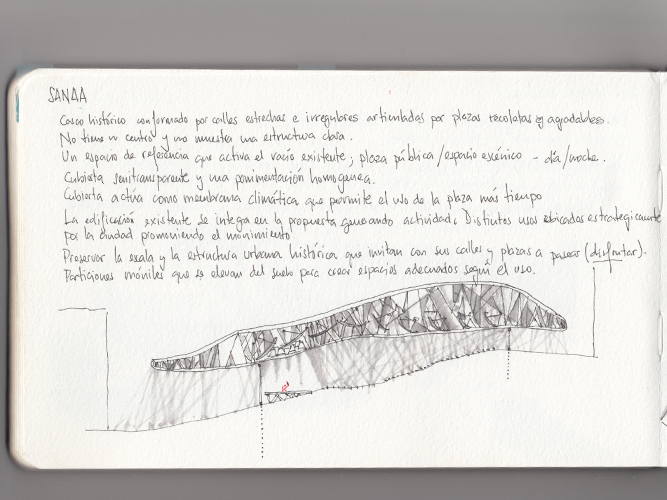 SANAA
Casco histórico conformado por calles estrechas e irregulares articuladas por plazas recoletas y agradables.
No tiene un centro y no muestra una estructura clara.
Un espacio de referencia que activa el vacío existente; plaza pública/espacio escénico - día/noche.
Cubierta semitransparente y una pavimentación homogenea.
Cubierta activa como membrana climática que permite el uso de la plaza más tiempo
La edificación existente se integra en la propuesta generando actividad. Distintos usos ubicados estrategicamente
por la ciudad promoviendo el movimiento
Preservar la escala y la estructura urbana histórica que invitan con sus calles y plazas a pasear (disfrutar).
Particiones móviles que se elevan del suelo para crear espacios adecuados según el uso.